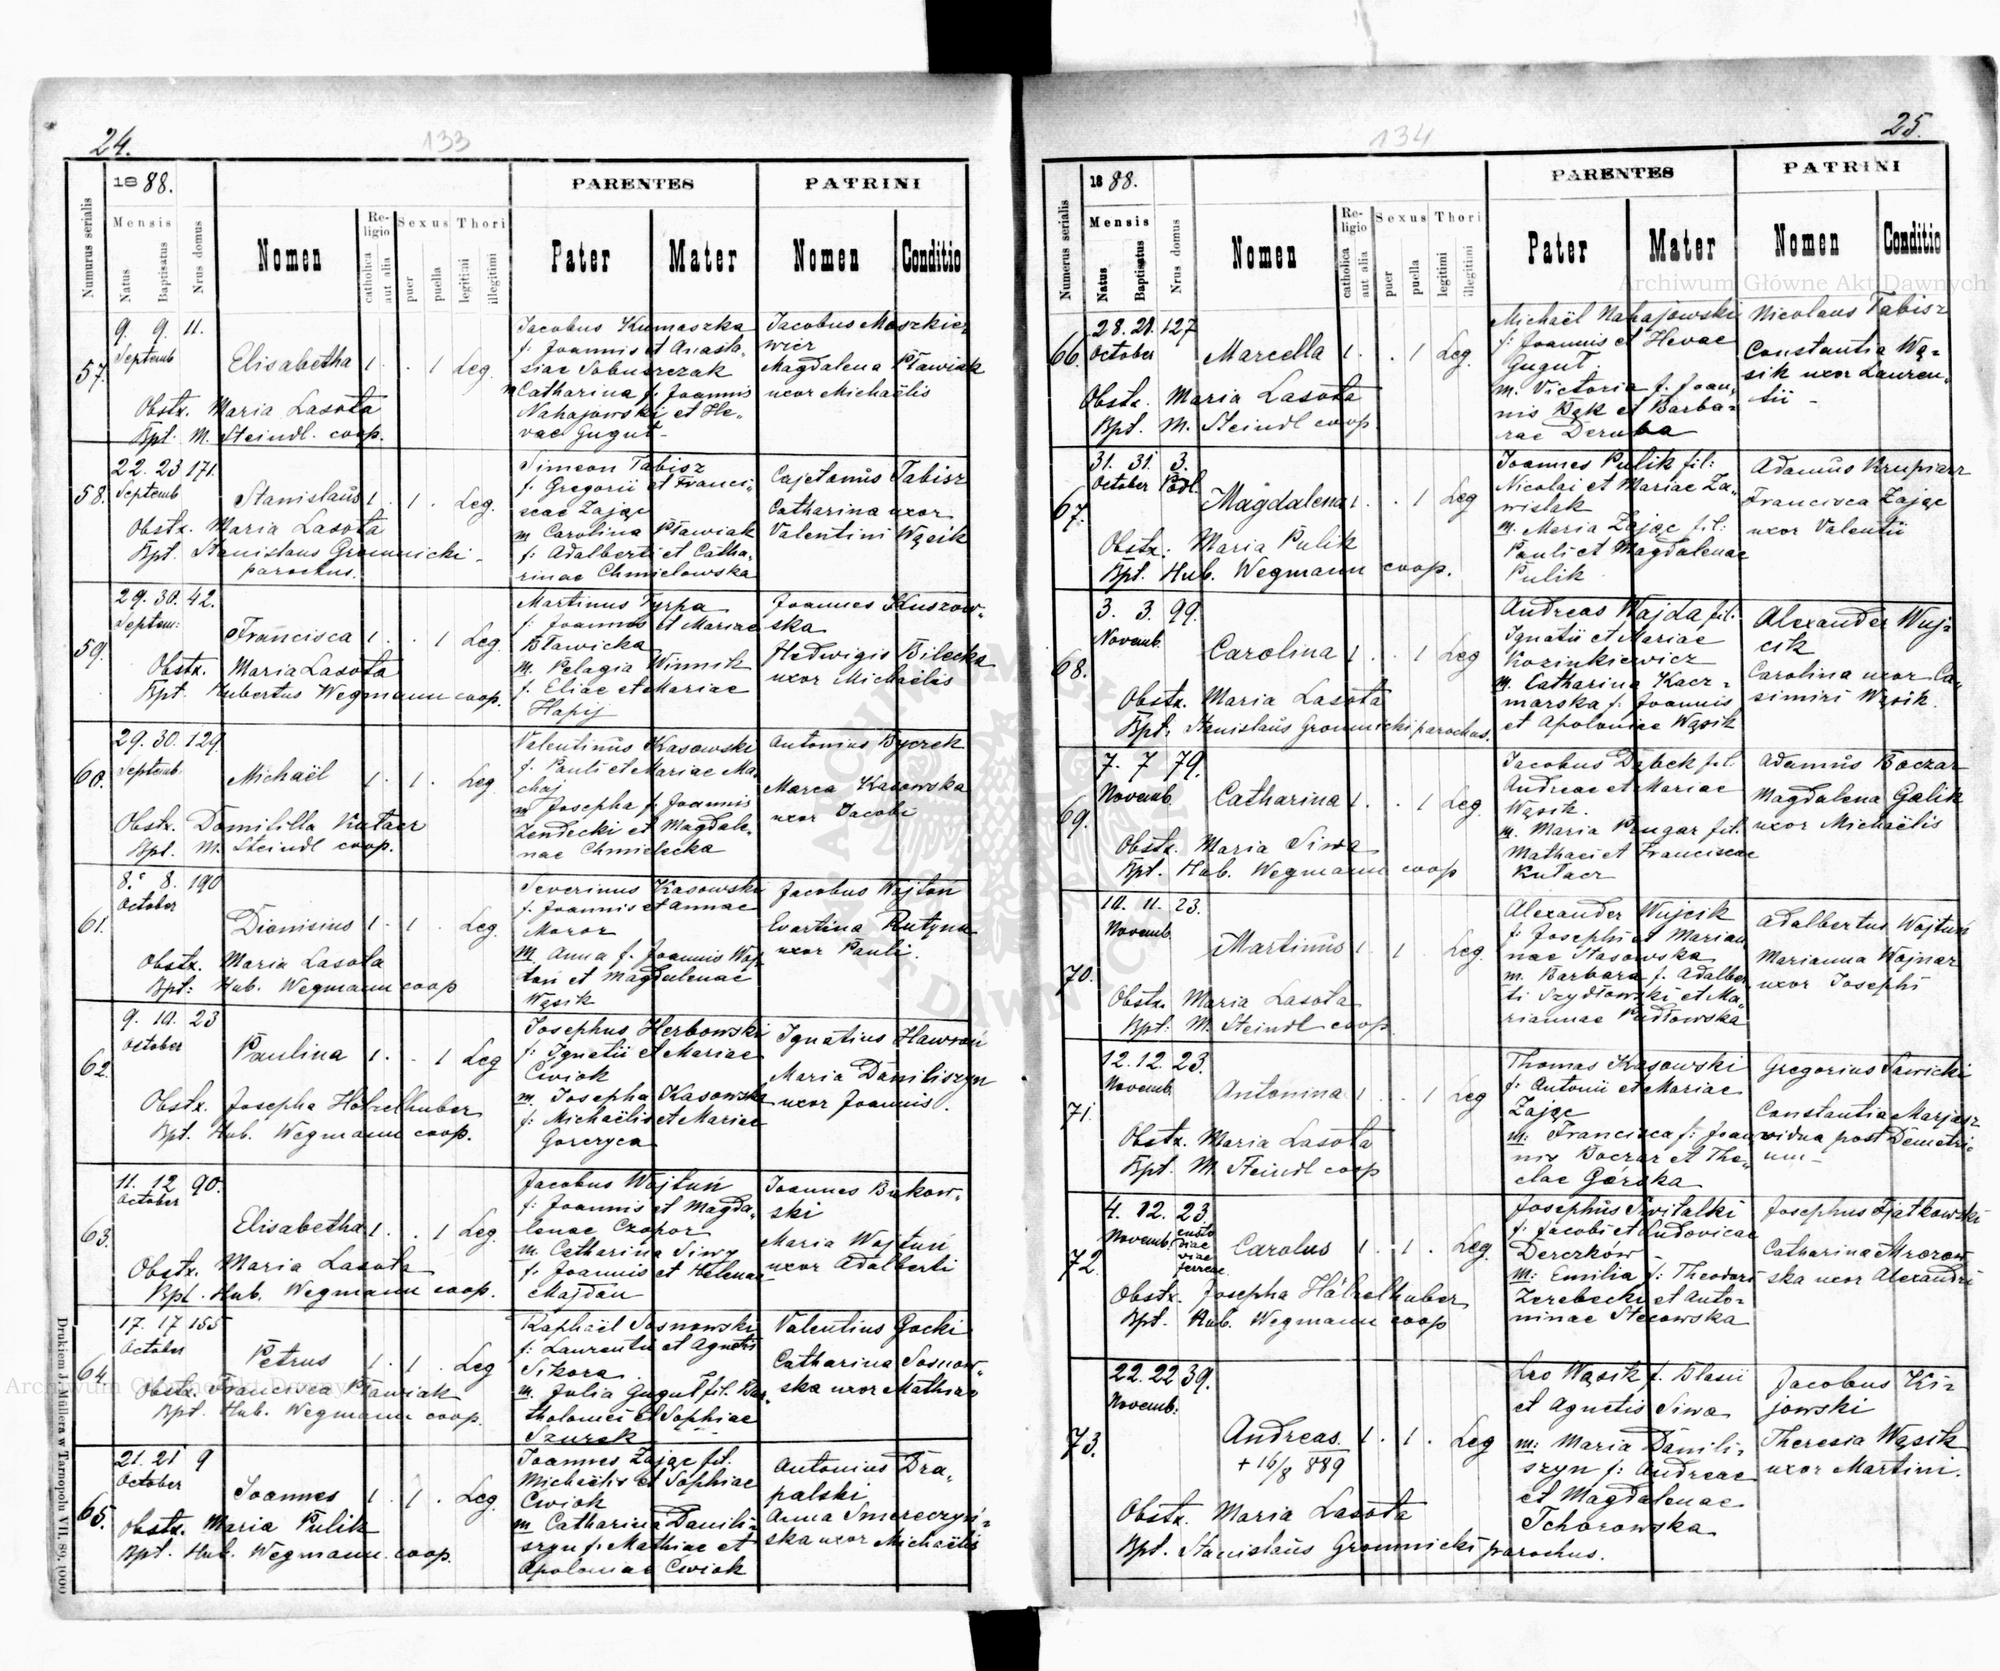 24.
133
1888.
PARENTES
PATRINI
Numerus serialis
Mensis
Natus
Baptisatus
Nrus domus
Nomen
Religio
catholica
aut alia
Sexus
puer
puella
Thori
legitimi
illegitimi
Pater
Mater
Nomen
Conditio
57.
9. 9. 11.
Septemb
Elisabetha 1. . 1 Leg.
Obstx. Maria Lasota
Bpt. M. Steindl. coop.
Jacobus Kumaszka
f. Joannis et Anasta-
siae Sobuszczak
m Catharina f. Joannis
Nahajowski et He-
vae Gugut
Jacobus Moszkie
wicz
Magdalena Pławiak
uxor Michaëlis
58.
22. 23 171.
Septemb
Stanislaus 1. . 1 . Leg.
Obstx. Maria Lasota
Bpt. Stanislaus Gromnicki
parochus.
Simeon Tabisz
f. Gregorii et Franci-
scae Zając
m Carolina Pławiak
f. Adalberti et Catha-
rinae Chmielowska
Cajetanus Tabisz
Catharina uxor
Valentini Wąsik
59.
29. 30. 42.
Septem:
Francisca 1. . 1 Leg
Obstx. Maria Lasota
Bpt. Hubertus Wegmann coop.
Martinus Tyrpa
f. Joannis et Mariae
Bławicka
m. Pelagia Winnik
f. Eliae et Mariae
Hapij
Joannes Kuszow-
ska
Hedwigis Bilecka
uxor Michaëlis
60.
29. 30. 129
Septemb.
Michaël 1. 1. Leg
Obstx. Domitilla Kutacz
Bpt. M. Steindl coop.
Valentinus Kasowski
f. Pauli et Mariae Ma
chaj
m Josepha f. Joannis
Zendecki et Magdale-
nae Chmielecka
Antonius Byczek
Marea Kasowska
uxor Jacobi
61.
8. 8. 190
October
Dionisius 1. 1 . Leg.
Obstx. Maria Lasota
Bpt: Hub. Wegmann coop
Severinus Kasowski
f. Joannis et Annae
Moroz
m Anna f. Joannis Woj
toń et Magdalenae
Wąsik
Jacobus Wojtoń
Evartina Rutyna
uxor Pauli.
62.
9. 10. 23
October
Paulina 1. . 1 Leg
Obstx. Josepha Hölzelhuber
Bpt. Hub. Wegmann coop.
Josephus Herbowski
f. Ignatii et Mariae
Cwiok
m. Josepha Kasowska
f. Michaëlis et Mariae
Gorczyca
Ignatius Hawroń
Maria Daniliszyn
uxor Joannis.
63.
11. 12 90.
October
Elisabetha 1. . 1 Leg.
Obstx. Maria Lasota
Bpt. Hub. Wegmann coop.
Jacobus Wojtuń
f. Joannis et Magda-
lenae Czopor
m. Catharina Siwy
f. Joannis et Helenae
Majdan
Joannes Bukow-
ski
Maria Wojtuń
uxor Adalberti
64.
17. 17 155
October
Petrus 1. 1. Leg
Obstx. Francisca Pławiak
Bpt. Hub. Wegmann coop.
Raphaël Sosnowski
f. Laurentii et Agnetis
Sikora
m. Julia Gugut fil. Bar
tholomei et Sophiae
Szurek
Valentius Gocki
Catharina Sosnow-
ska uxor Mathiae
65.
21. 21 9
October
Joannes 1. 1. Leg.
Obstx. Maria Pulik
Bpt. Hub. Wegmann coop.
Joannes Zając fil.
Michaëlis et Sophiae
Cwiok
m Catharina Danili-
szyn f. Mathiae et
Apoloniae Cwiok
Antonius Dra-
palski
Anna Smereczyń-
ska uxor Michaëlis
Drukiem J. Müllera w Tarnopolu VII. 89. 1000
25.
134
1888.
PARENTES
PATRINI
Numerus serialis
Mensis
Natus
Baptisatus
Nrus domus
Nomen
Religio
catholica
aut alia
Sexus
puer
puella
Thori
legitimi
illegitimi
Pater
Mater
Nomen
Conditio
66.
28. 28. 127
October
Marcella 1. . 1 Leg.
Obstx. Maria Lasota
Bpt. M. Steindl coop.
Michaël Nahajowski
f. Joannis et Hevae
Gugut.
m. Victoria f. Joan-
nis Bąk et Barba-
rae Deruba
Nicolaus Tabisz
Constantia Wą-
sik uxor Lauren-
tii
67.
31. 31. 3.
October Podl.
Magdalena 1. . 1 Leg
Obstx. Maria Pulik
Bpt. Hub. Wegmann coop.
Joannes Pulik fil:
Nicolai et Mariae Za-
wislak
m. Maria Zając fil:
Pauli et Magdalenae
Pulik
Adamus Krupiarz
Francisca Zając
uxor Valentii
68.
3. 3. 99.
Novemb.
Carolina 1. . 1 Leg
Obstx. Maria Lasota
Bpt. Stanislaus Gromnicki parochus.
Andreas Wajda fil:
Ignatii et Mariae
Kozinkiewicz
m. Catharina Kacz-
marska f. Joannis
et Apoloniae Wąsik
Alexander Wuj-
cik
Carolina uxor Ca-
simiri Wąsik.
69.
7. 7 79.
Novemb.
Catharina 1. . 1 Leg.
Obstx. Maria Siwa
Bpt. Hub. Wegmann coop
Jacobus Dąbek fil.
Andreae et Mariae
Wąsik.
m. Maria Prugar fil.
Mathaei et Franciscae
Kutacz
Adamus Boczar
Magdalena Galik
uxor Michaëlis
70.
10. 11. 23.
Novemb.
Martinus 1. 1. Leg.
Obstx. Maria Lasota
Bpt. M. Steindl coop.
Alexander Wujcik
f. Josephi et Marian
nae Stasowska
m. Barbara f. Adalber
ti Szydłowski et Ma-
riannae Pudłowska
Adalbertus Wojtuń
Marianna Wojnar
uxor Josephi
71.
12. 12. 23.
Novemb.
Antonina 1. . 1 Leg
Obstx. Maria Lasota
Bpt. M. Steindl coop
Thomas Kasowski
f. Antonii et Mariae
Zając
m: Francisca f: Joan
nis Boczar et The-
clae Górska
Gregorius Sawicki
Constantia Marjasz
vidua post Demetri-
um
72.
4. 12. 23
Novemb. custo
diae
viae
ferreae
Carolus 1. 1. Leg.
Obstx. Josepha Hölzelhuber
Bpt. Hub. Wegmann coop
Josephus Switalski
f. Jacobi et Ludovicae
Derczkow
m: Emilia f: Theodori
Zerebecki et Anto-
ninae Stecowska
Josephus Fjatkowski
Catharina Mrozow
ska uxor Alexandri
73.
22. 22 39.
Novemb.
Andreas. 1. 1. Leg
+ 16/8 889
Obstx. Maria Lasota
Bpt. Stanislaus Gromnicki parochus.
Leo Wąsik f. Blasii
et Agnetis Siwa
m: Maria Danili-
szyn f: Andreae
et Magdalenae
Tchorowska
Jacobus Ki-
jowski
Theresia Wąsik
uxor Martini.
Archiwum Główne Akt Dawnych
Archiwum Główne Akt Dawnych